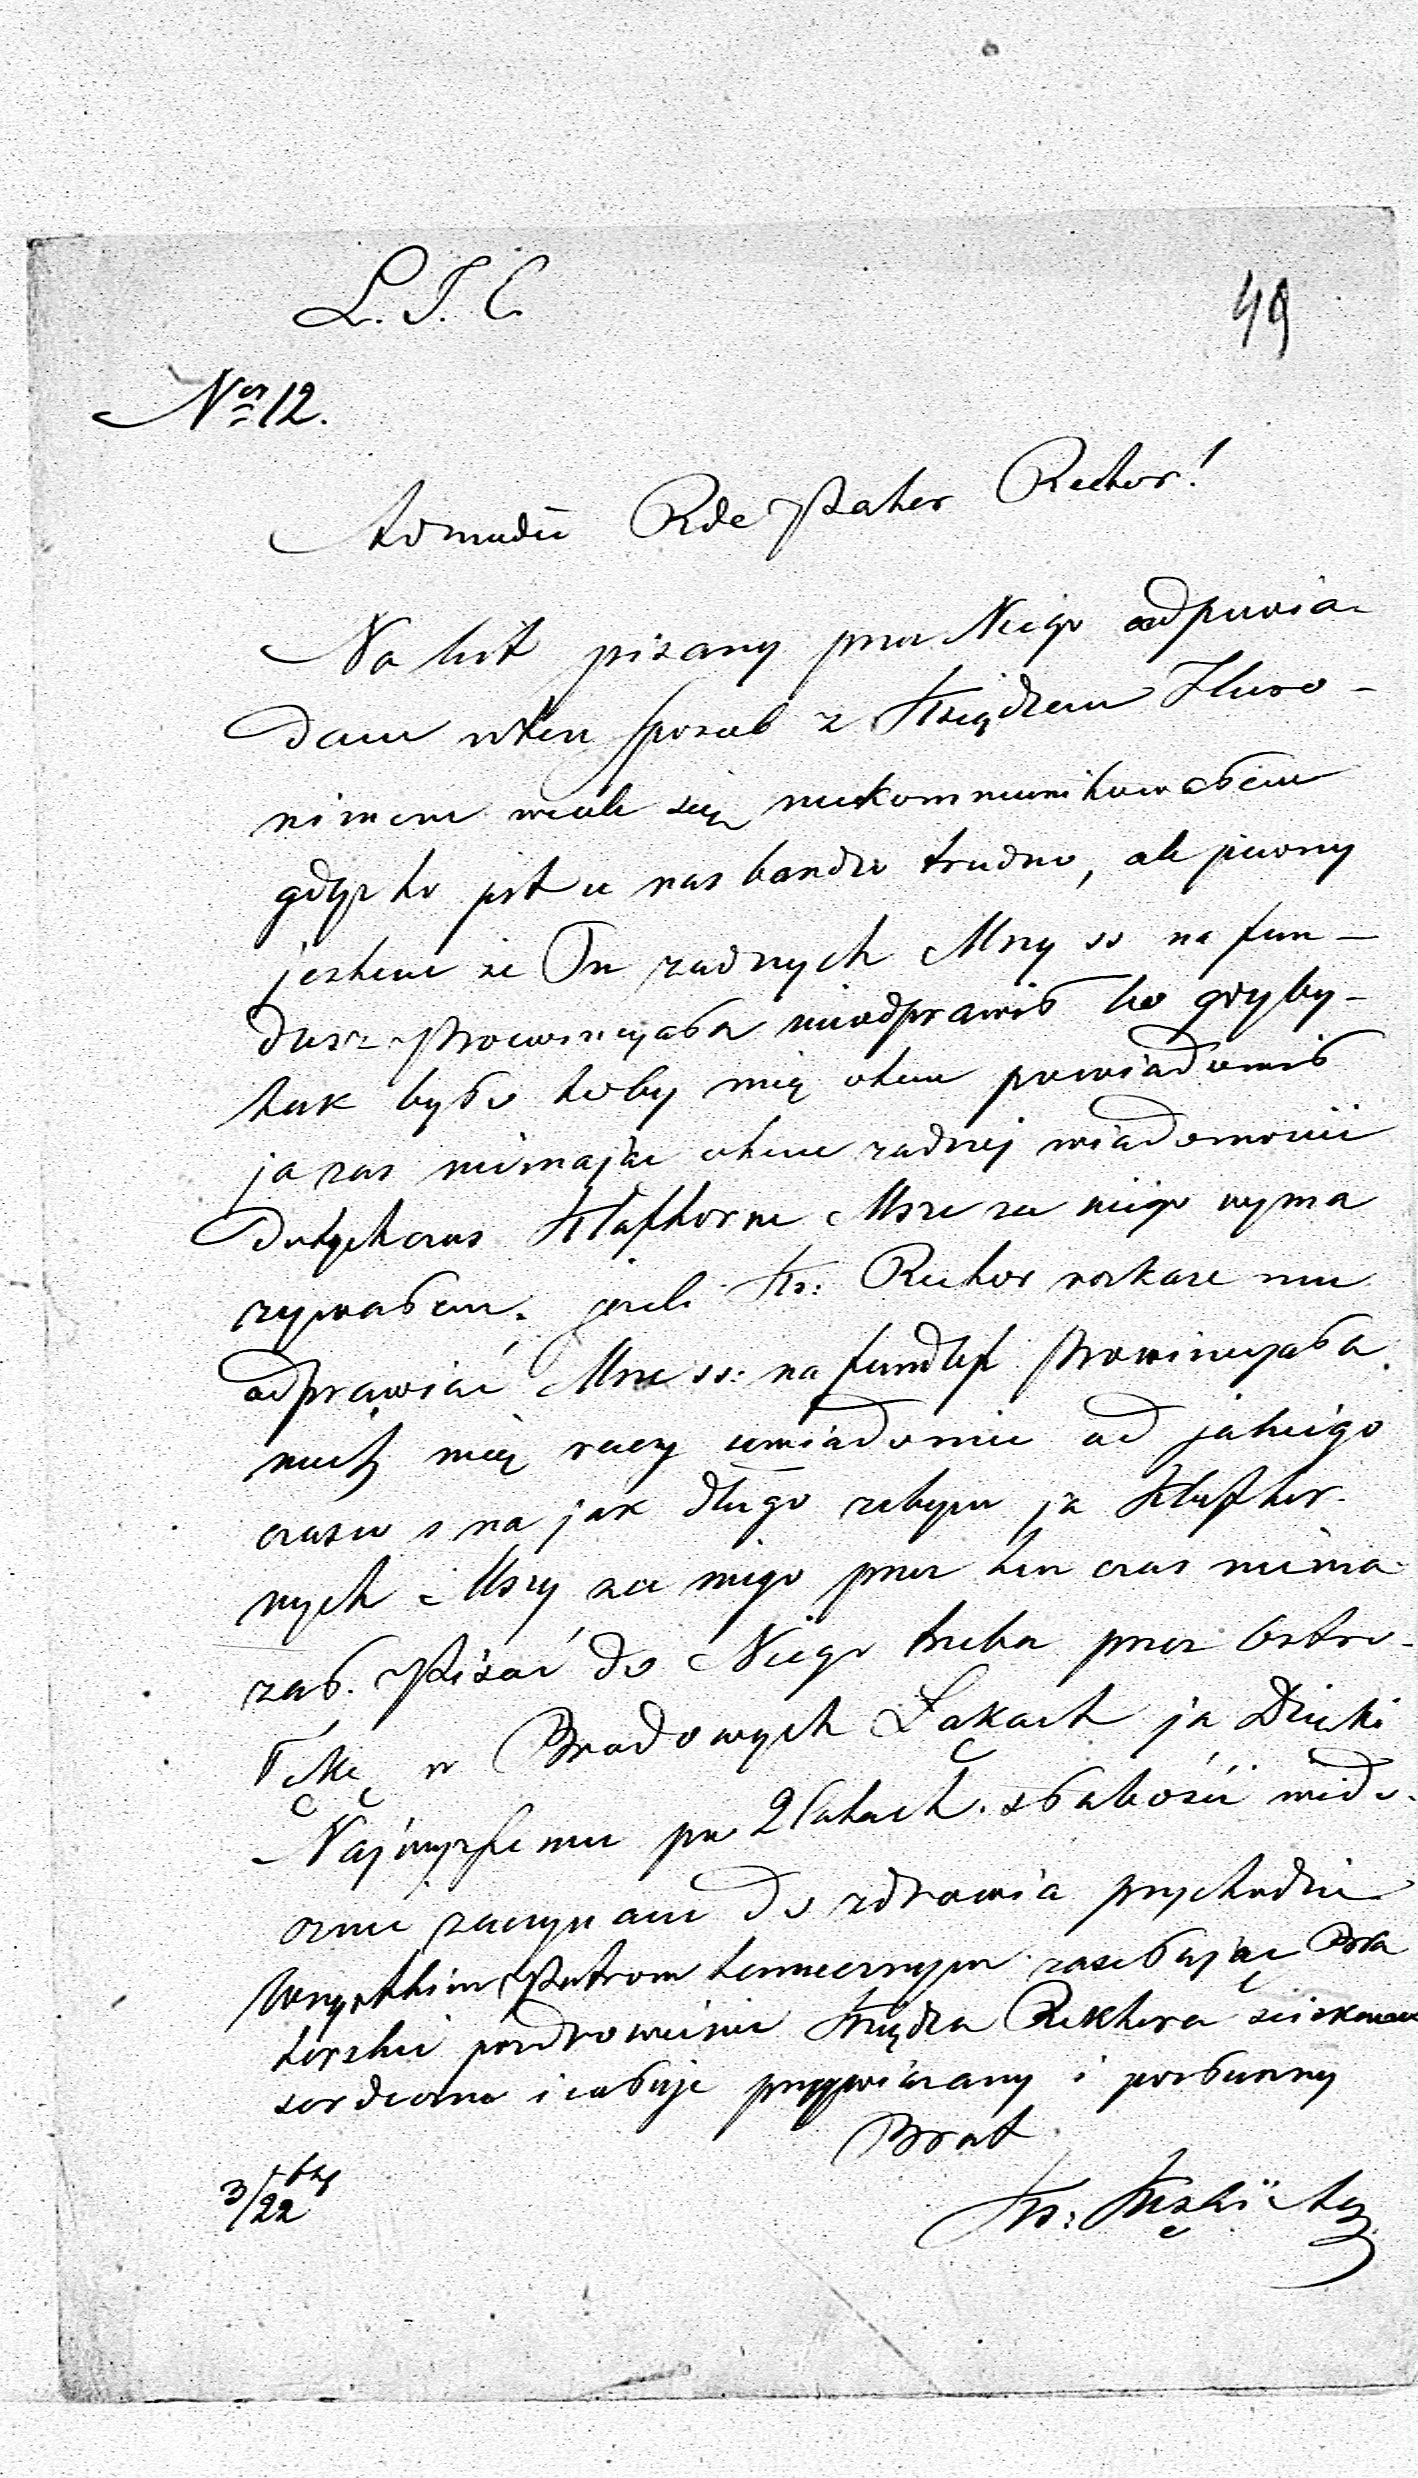 L. J. C.
49
No 12.
Admodu Rde Pater Rector!
Na list pisany przez Niego odpowia-
dam w ten sposob z Księdzem
nimem wcale się niekommunikowałem
gdyż to jest u nas bardzo trudno, ale pewny
jestem że On zadnych Mszy ss na fun-
dusz Prowincyała nieodprawił bo gdyby
tak było toby mię otem powiadomił
ja zas niemając otem zadnej wiadomości
dotychczas Klasztorne Msze za niego wyma
zywałem. jezeli Ks: Rector rozkaze mu
odprawiać Msze ss: na fundusz Prowincyała
niech mię raczy uwiadomić od jakiego
czasu i na jak długo zebym ja Klasztor-
nych Mszy za niego przez ten czas niema-
zał. Pisać do Niego trzeba przez Ostro-
łękę w Brodowych Łąkach ja Dzięki
Najwyzszemu po 2 latach słabości wido-
cznie zaczynam do zdrowia przychodzić
Wszystkim Patrom tamecznym zasełając Bra
terskie pozdrowienie Księdza Rektora sciskam
serdeczno i całuje przywiązany i posłuszny
Brat
3/22
Ks: